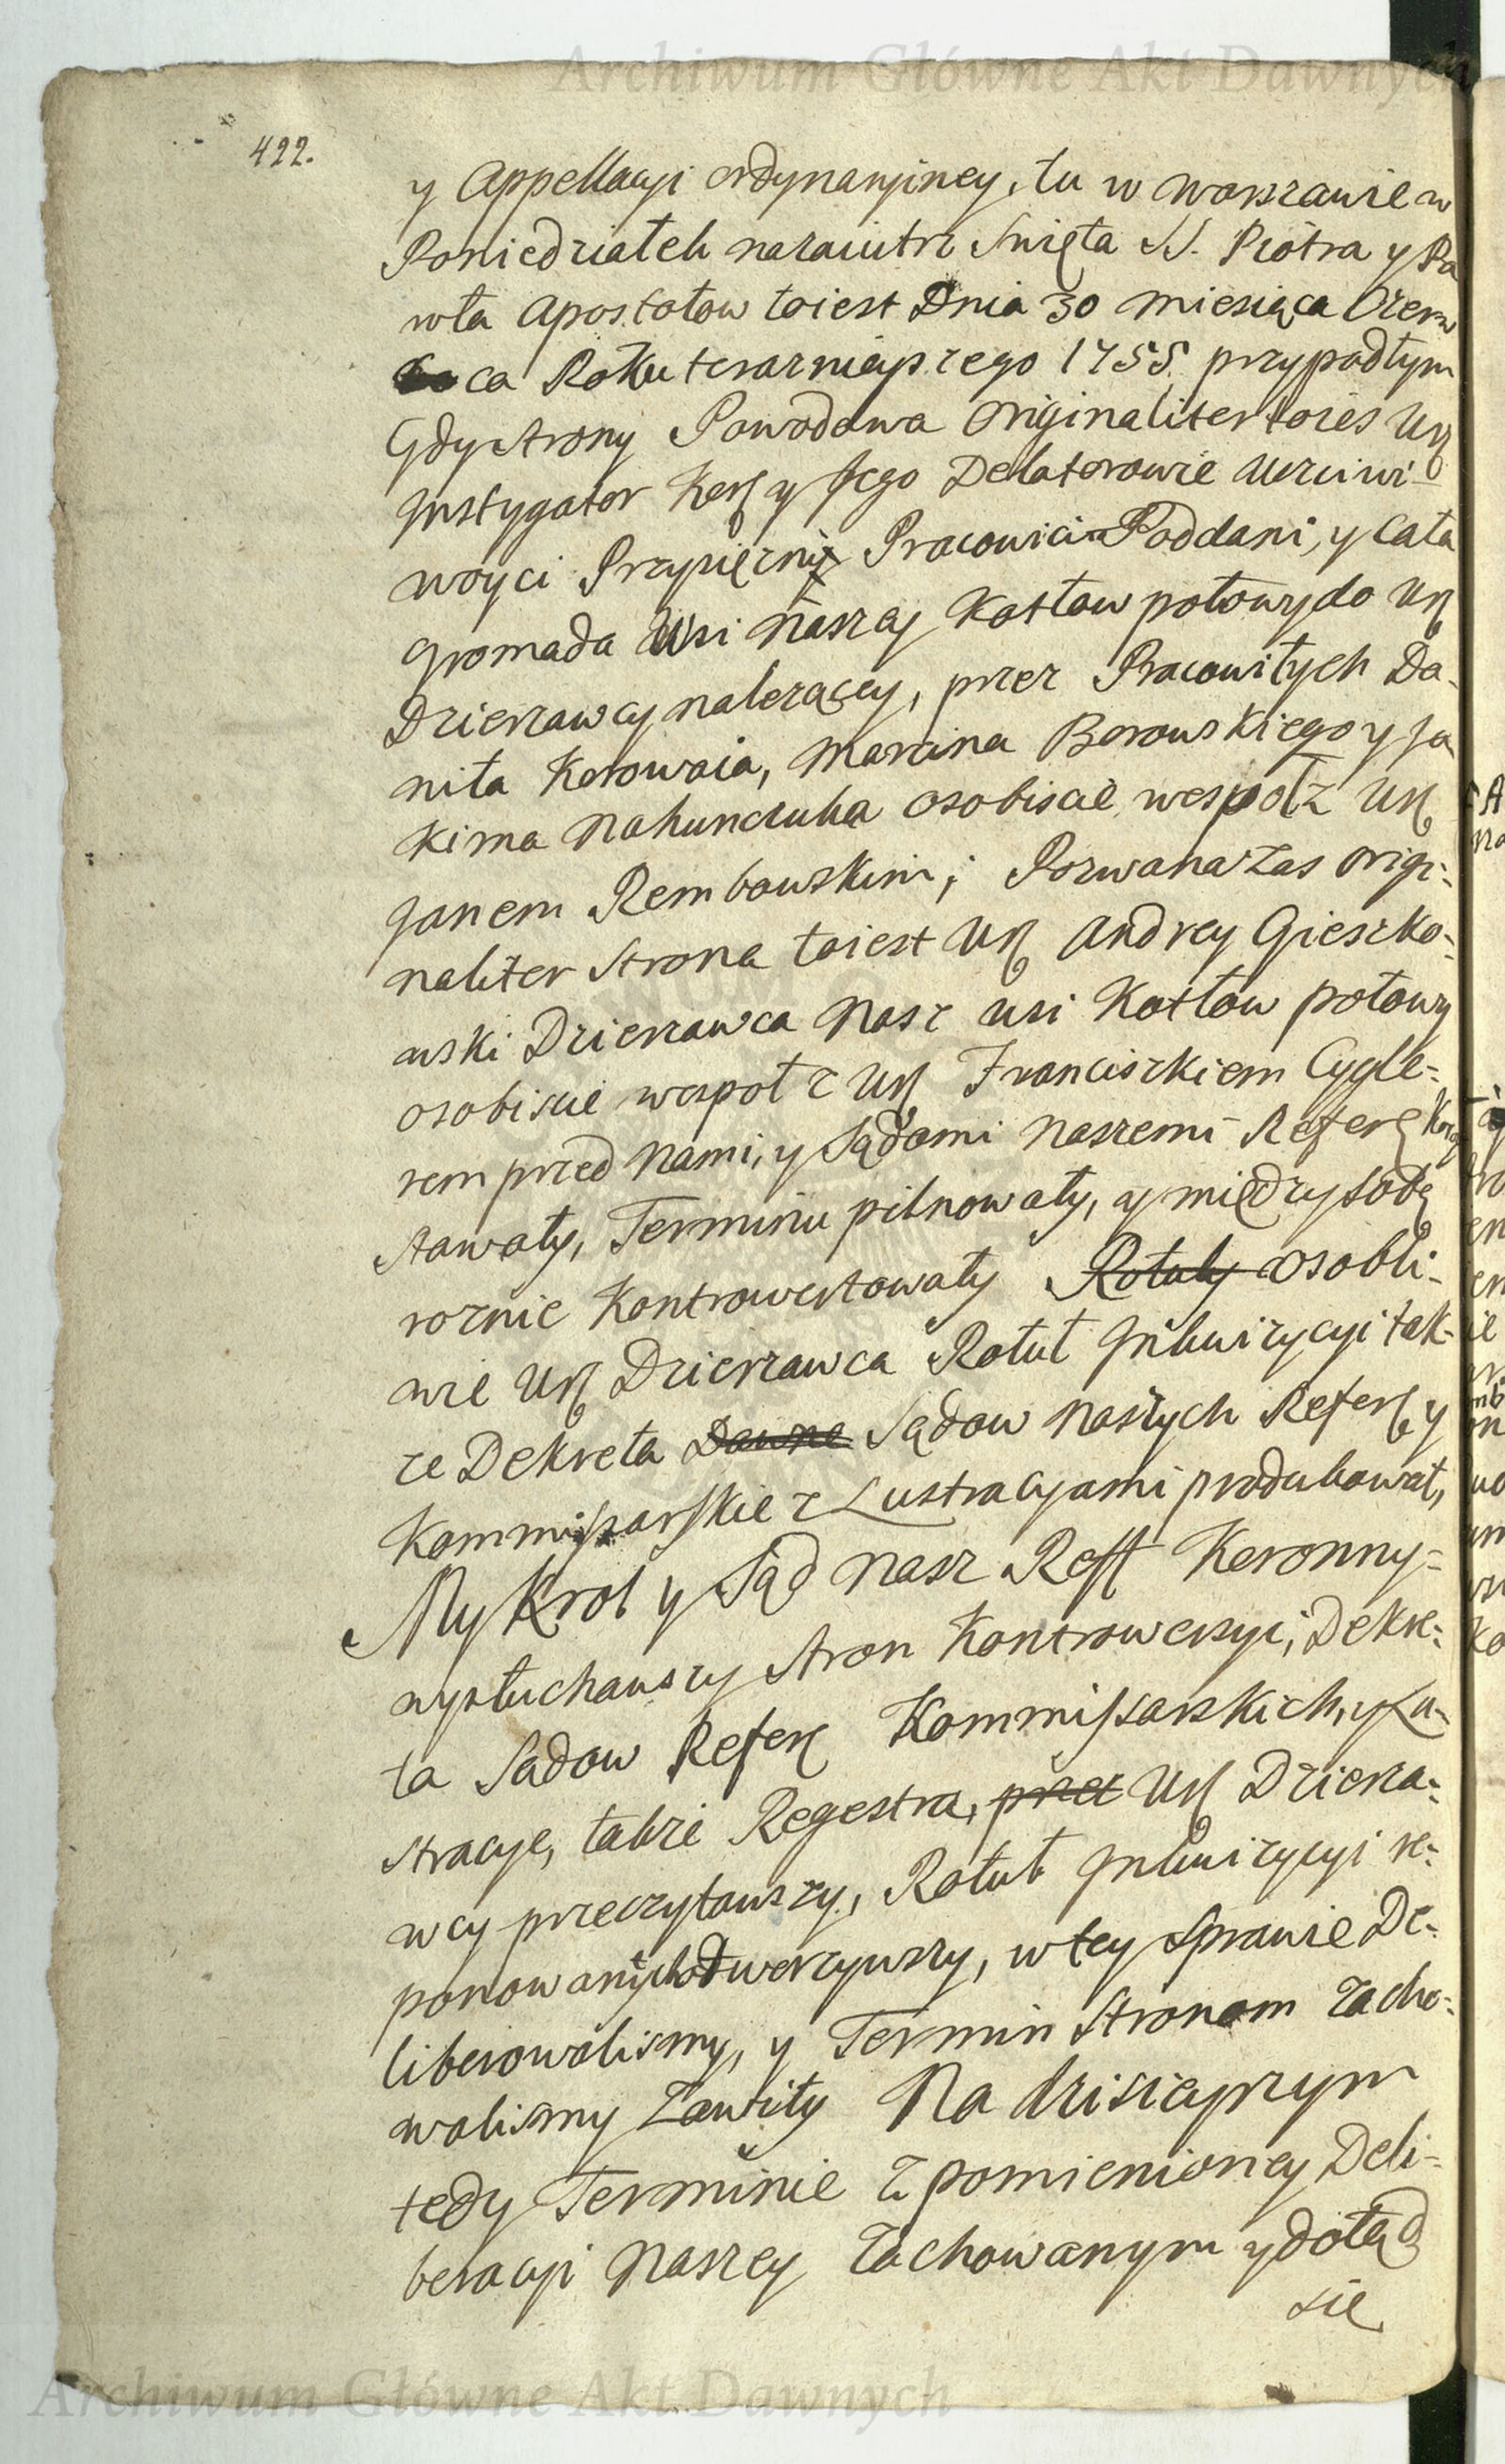 Archiwum Główne Akt Dawnych
422.
y Appellacyi ordynaryiney, tu w Warszawie w
Poniedziałek nazaiutrz Swięta SS. Piotra y Pa
wła Apostołow toiest Dnia 30 Miesiąca Czerw
ca Roku terazniejszego 1755 przypadłym
Gdy strony Powodowa Originaliter toies Ur
Instygator Kor y Jego Delatorowie Uczciwi
woyci Przysięzni Pracowici Poddani, y Cała
gromada Wsi Naszey Kotłow połowy do Ur
Dzierzawcy nalezącey, przez Pracowitych Da-
niła Korowaia, Marcina Borowskiego y Ja
kima Nahunczuka osobiscie wespoł z Ur
Janem Rembowskim; Pozwana zas origi-
naliter Strona toiest Ur Andrzey Gieszko-
wski Dzierzawca Nasz wsi Kotłow połowy
osobiscie wespoł z Ur Franciszkiem Cygle-
rem przed Nami, y Sądami Naszemi Refer Kor
stawały, Terminu pilnowały, y między sobą
roznie Kontrowertowały Rotuły osobli-
wie Ur Dzierzawca Rotuł Inkwizycyi tak-
ze Dekreta Dawne Sądow Naszych Refer y
Kommissarskie z Lustracyami produkował,
My Krol y Sąd Nasz Reff Koronny
wysłuchawszy stron Kontrowersyi, Dekre-
ta Sądow Refer Kommissarskich, y Lu-
stracye, takze Regestra, przez Ur Dzierza-
wcy przeczytawszy, Rotuł Inkwizycyi re-
ponowanych otworzywszy, w tey Sprawie De-
liberowalismy, y Termin Stronom zacho-
walismy Zawity Na dzisieyszym
tedy Terminie z pomienioney Deli-
beracyi Naszey zachowanym y dotąd
sie
Archiwum Główne Akt Dawnych